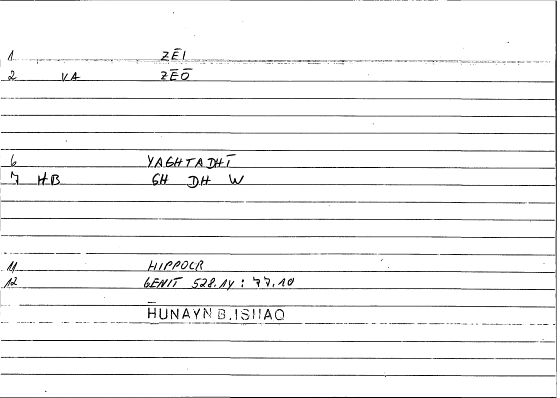 1 ZĒI
2 VA ZĒŌ
6 YAGHTADHĪ
7 HB GH DH W
11 HIPPOCR
12 GENIT 528.14 : 77.10
HUNAYN B.ISHAQ